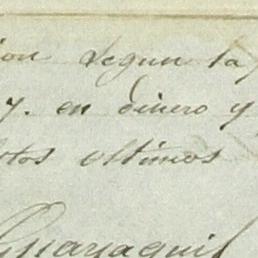 ion segun la
7. en dinero y
stos ultimos
Guayaquil